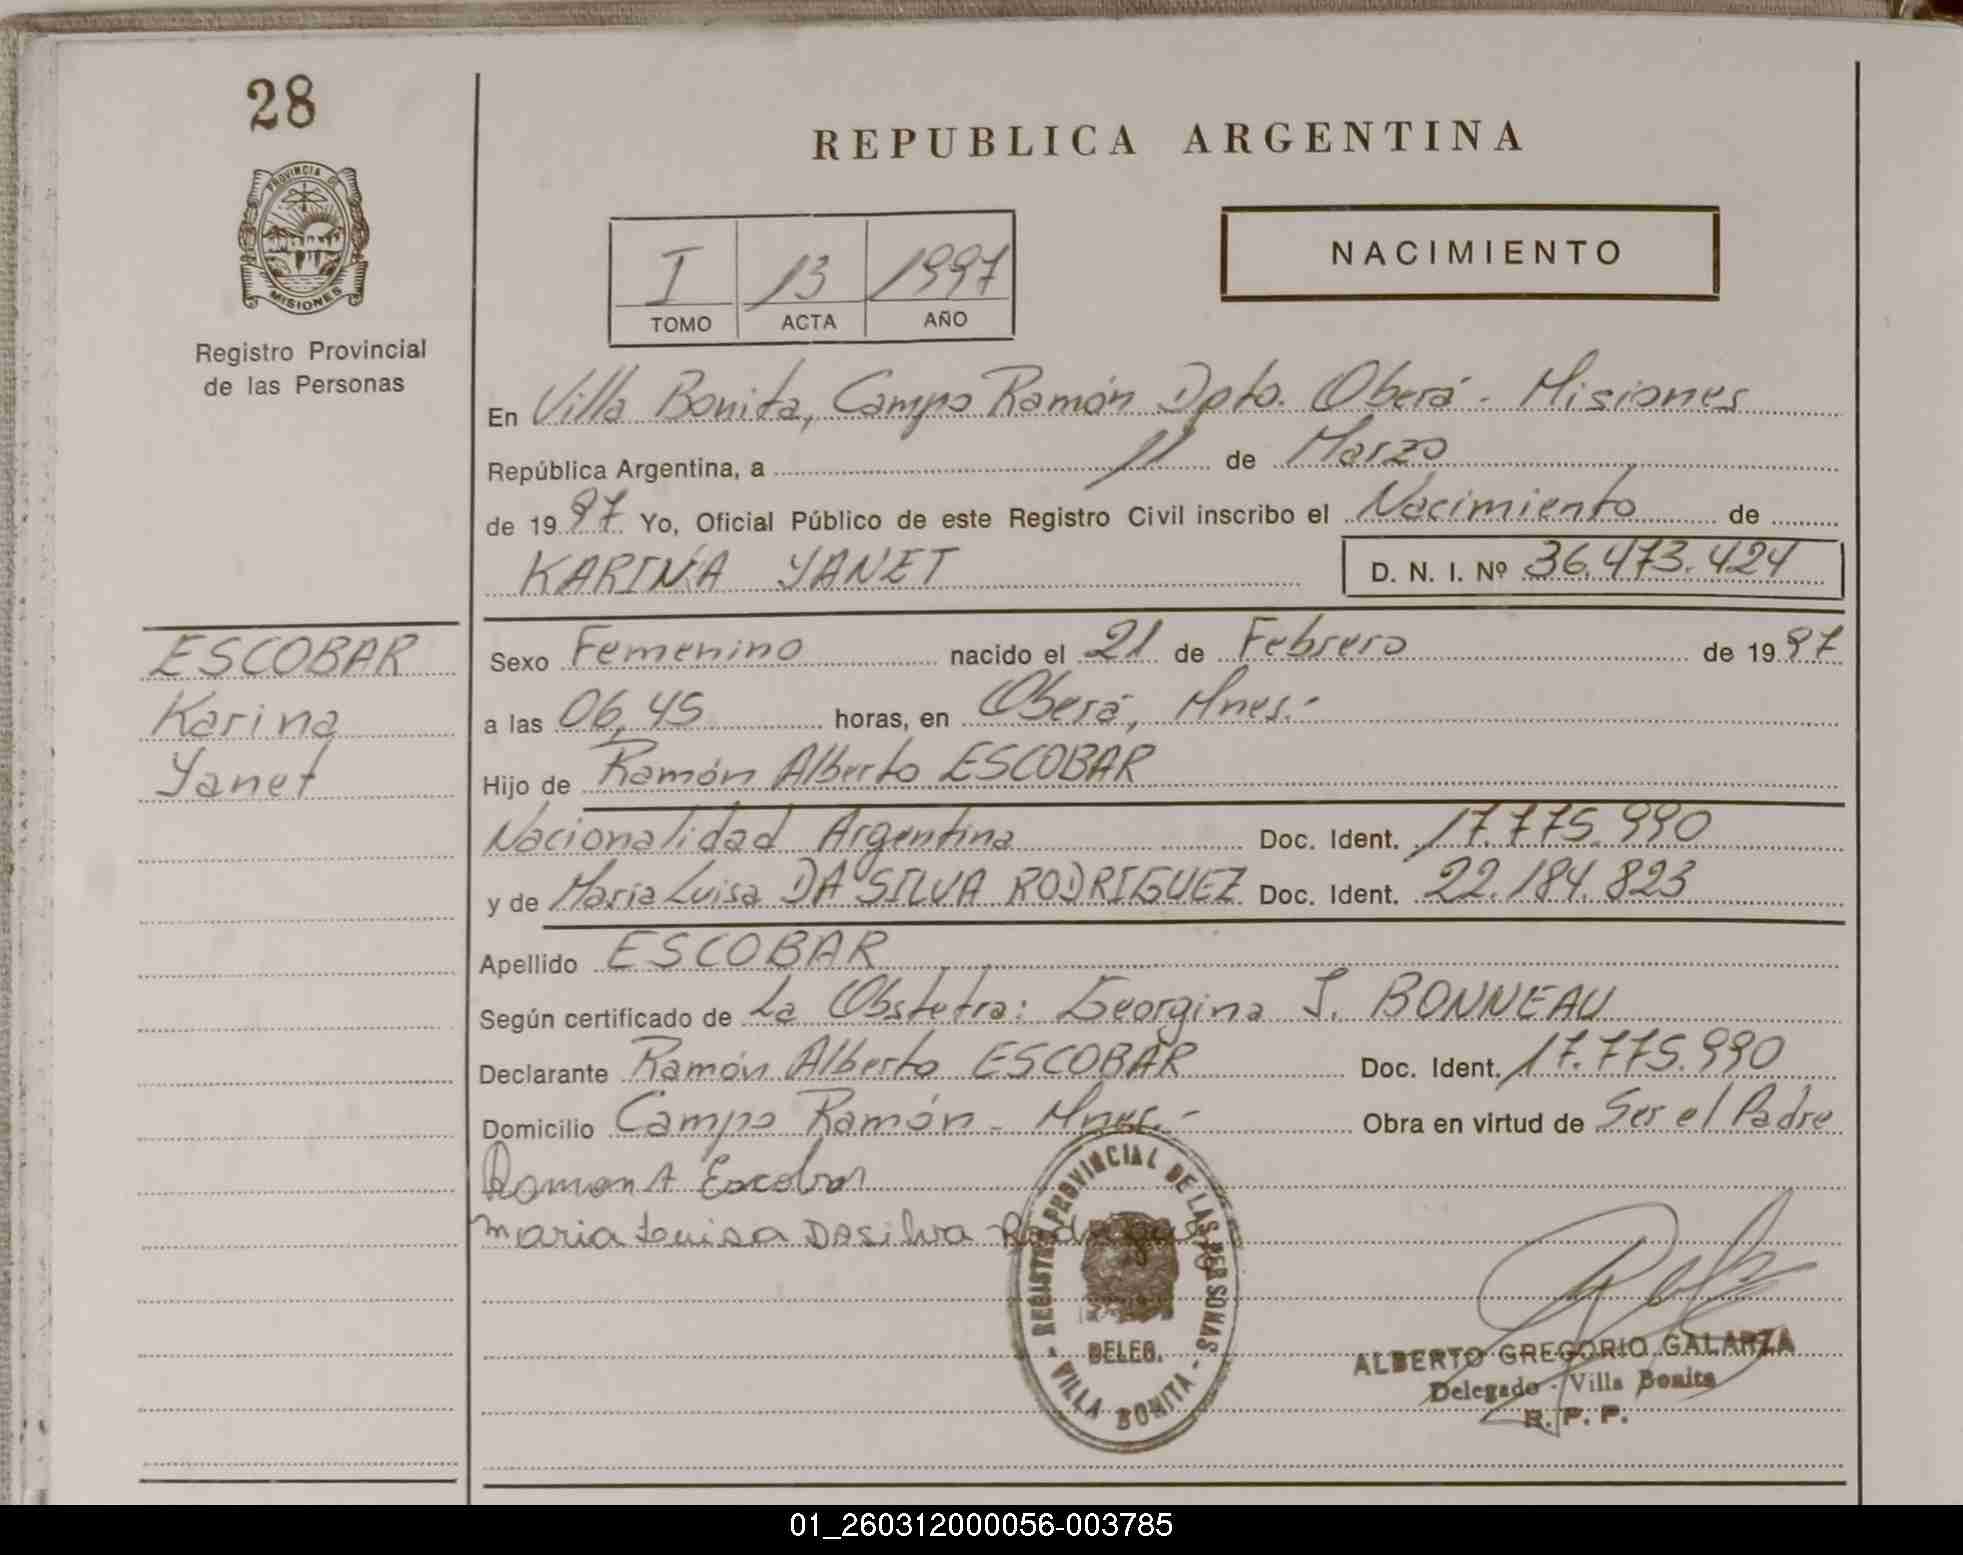 28
REPUBLICA ARGENTINA
PROVINCIA DE
MISIONES
Registro Provincial
de las Personas
NACIMIENTO
I 13 1997
TOMO ACTA AÑO
En Villa Bonita, Campo Ramón Dpto. Oberá - Misiones
República Argentina, a 11 de Marzo
de 1997 Yo, Oficial Público de este Registro Civil inscribo el Nacimiento de
KARINA YANET D. N. I. Nº 36.473.424
ESCOBAR
Karina
Yanet
Sexo Femenino nacido el 21 de Febrero de 1997
a las 06,45 horas, en Oberá, Mnes.-
Hijo de Ramón Alberto ESCOBAR
Nacionalidad Argentina Doc. Ident. 17.775.990
y de María Luisa DA SILVA RODRIGUEZ Doc. Ident. 22.184.823
Apellido ESCOBAR
Según certificado de La Obstetra: Georgina S. BONNEAU
Declarante Ramón Alberto ESCOBAR Doc. Ident. 17.775.990
Domicilio Campo Ramón - Mnes.- Obra en virtud de Ser el Padre
Ramon A Escobar
Maria Luisa Dasilva
REGISTRO PROVINCIAL DE LAS PERSONAS
DELEG.
- VILLA BONITA -
ALBERTO GREGORIO GALARZA
Delegado - Villa Bonita
R. P. P.
01_260312000056-003785